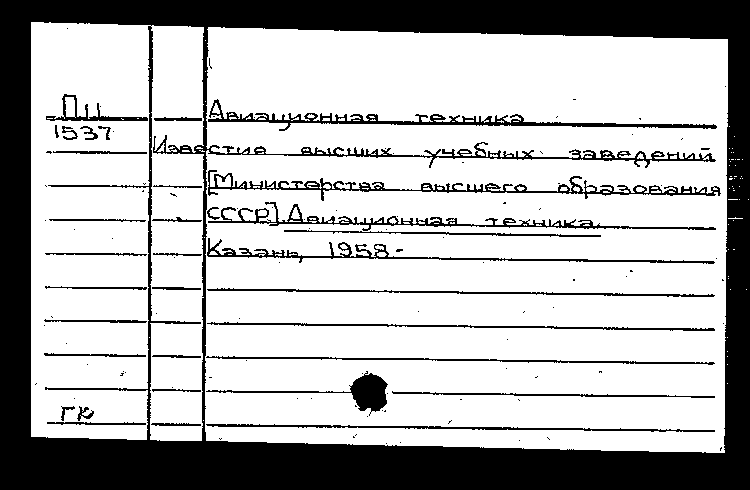 Пц Авиационная техника
1537
Известия высших учебных заведений
[Министерства высшего образования
СССР]. Авиационная техника.
Казань, 1958-
ГК